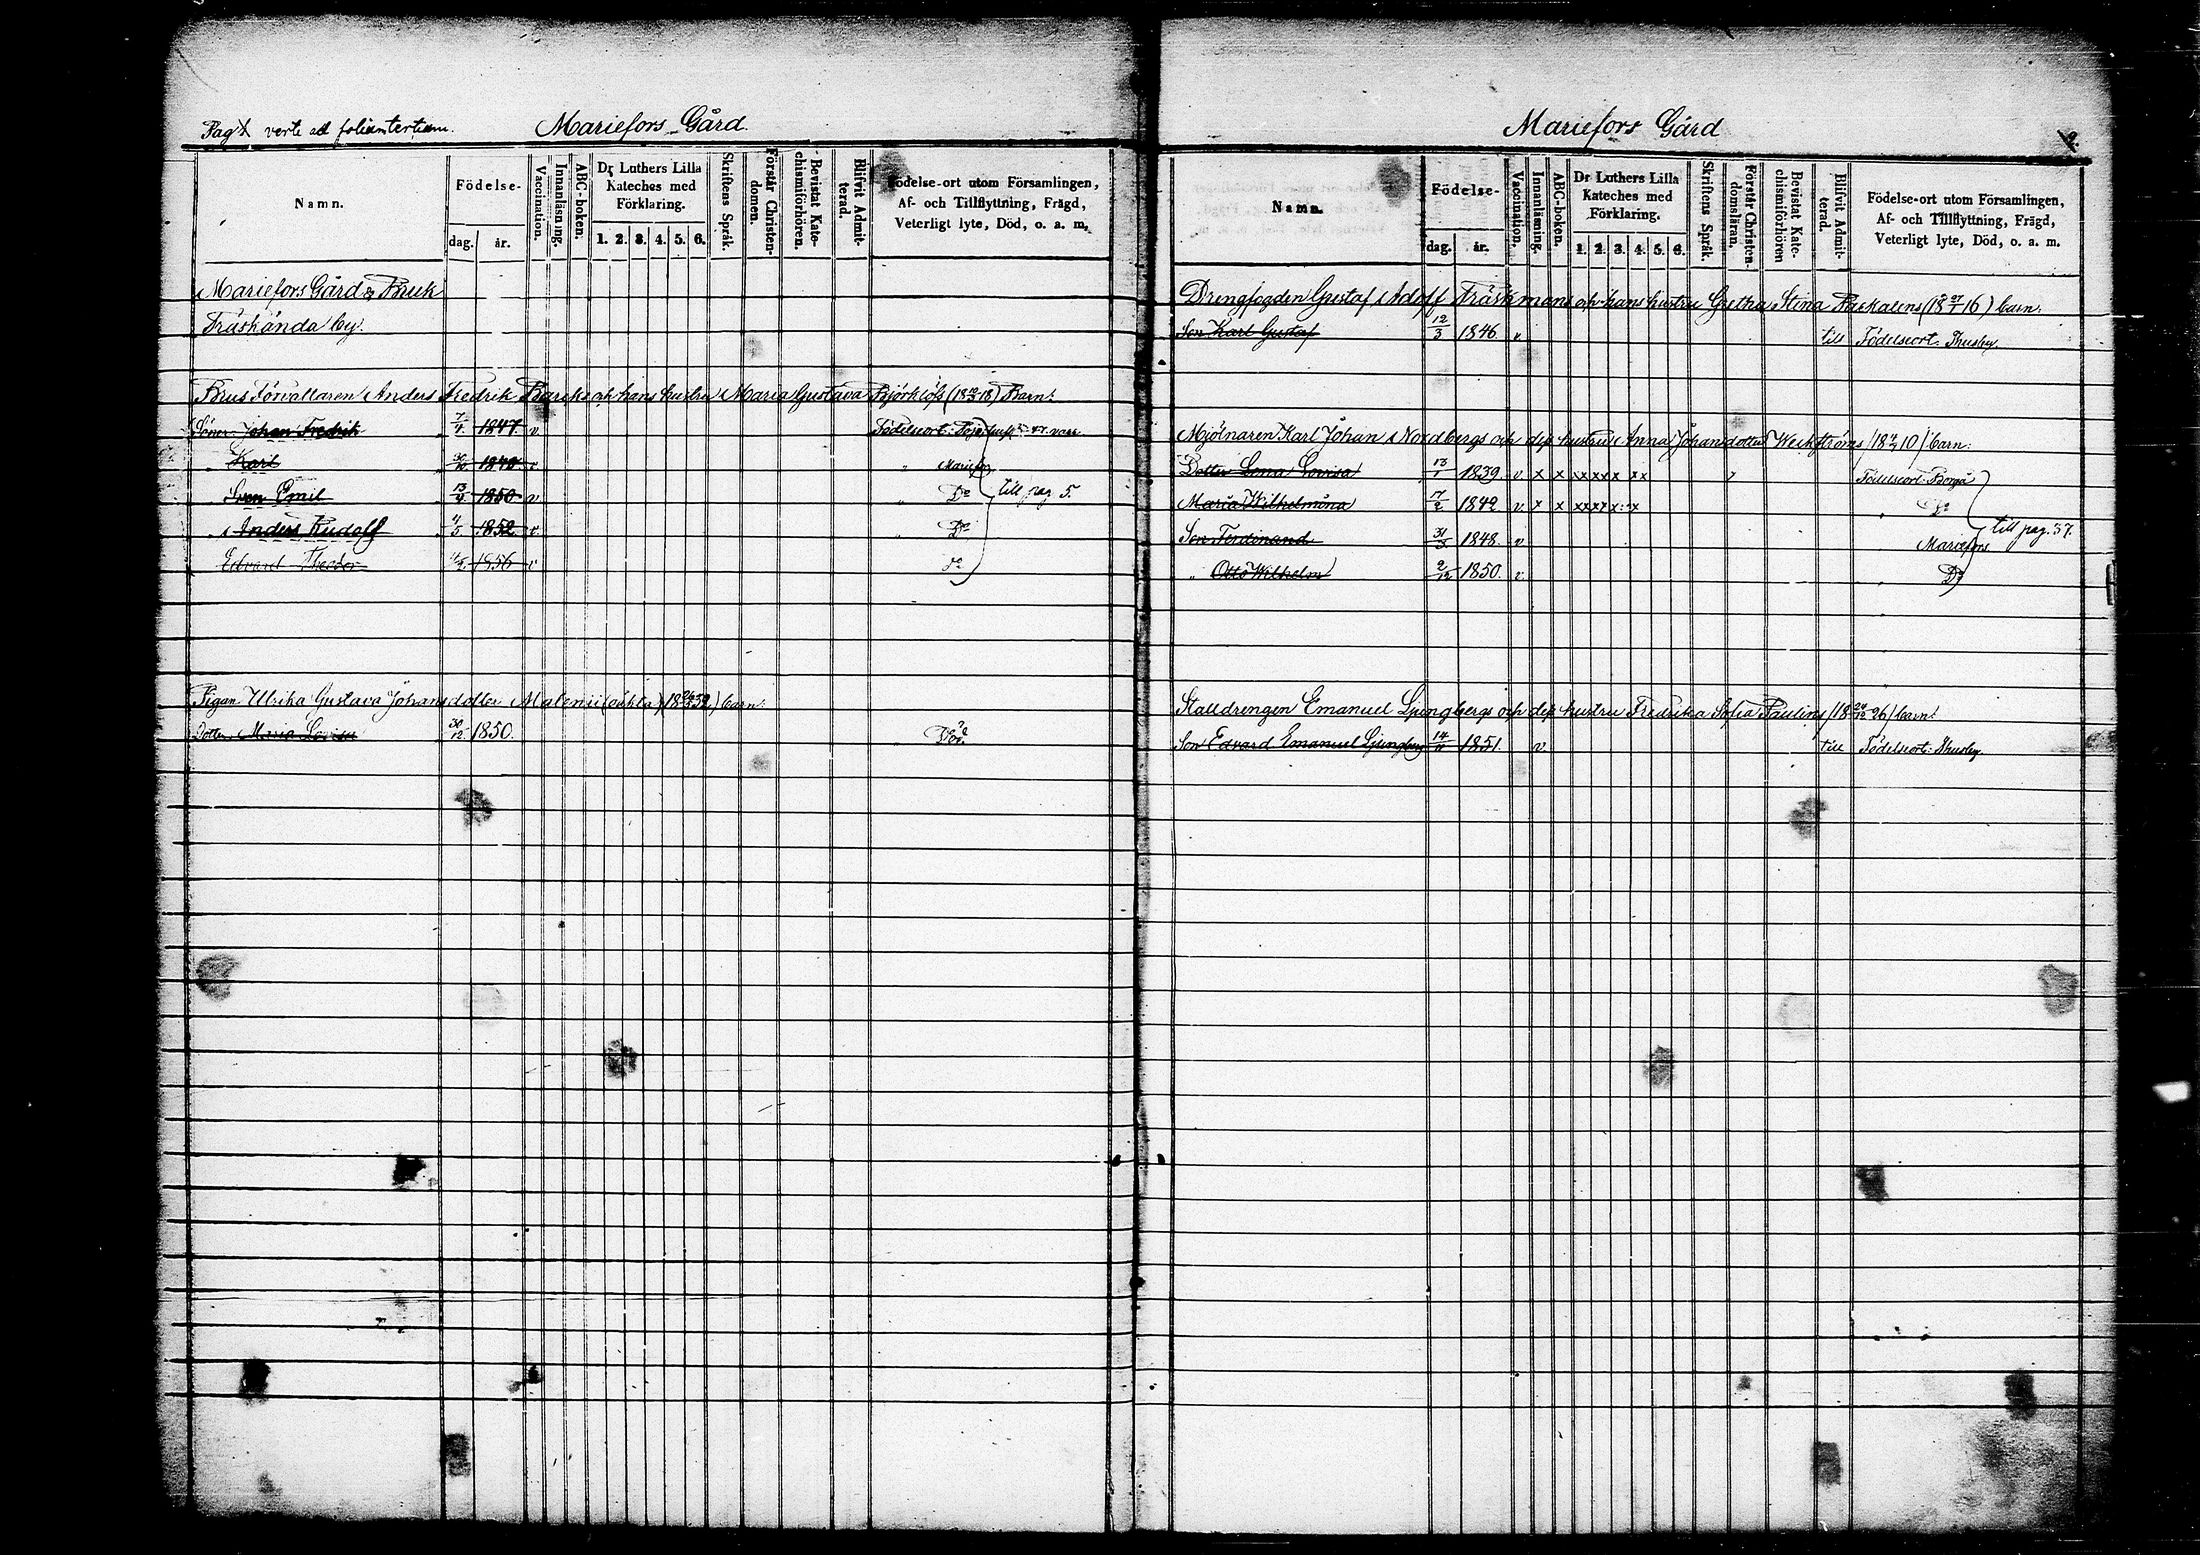 Pag verte ad folium tertium. Mariefors Gård.
Namn. Födelse- dag. år. Vaccination. Innanläsning. ABC-boken. Dr Luthers Lilla Kateches med Förklaring. 1. 2. 3. 4. 5. 6. Skriftens Språk. Förstår Christendomen. Bevistat Katechismiförhören. Blifvit Admitterad. Födelse-ort utom Församlingen, Af- och Tillflyttning, Frägd, Veterligt lyte, Död, o. a. m.
Mariefors Gård & Bruk
Träskända by.
Bruks Förvaltaren Anders Fredrik och hans hustru Maria Gustava Björklöf (18 18) Barn:
Söner: Johan Fredrik 7/4 1847 v Födelseort:
" Karl 30/10 1848 v " Mariefors
" Sven Emil 13/4 1850 v " Do till pag 5.
" Anders Rudolf 4/5 1852 v " Do
Edvard Theodor 1856 v Do
Pigan Ulrika Gustava Johansdotter Malenii (oäkta) barn:
Dotter Maria Lovisa 30/12 1850.
Mariefors Gård
2.
Namn. Födelse- dag. år. Vaccination. Innanläsning. ABC-boken. Dr Luthers Lilla Kateches med Förklaring. 1. 2. 3. 4. 5. 6. Skriftens Språk. Förstår Christendomsläran. Bevistat Katechismiförhören Blifvit Admitterad. Födelse-ort utom Församlingen, Af- och Tillflyttning, Frägd, Veterligt lyte, Död, o. a. m.
Drengfogden Gustaf Adolf Träskmans och hans hustru Gretha Stina barn:
Son Karl Gustaf 12/3 1846. v. till Födelseort: Thusby
Mjölnaren Karl Johan Nordbergs och dess hustru Anna Johansdotter Weckströms (18 10) barn:
Dotter Lena Lovisa 13/1 1839. v. x x x x x x x x Födelseort: Borgå
Maria Wilhelmina 17/2 1842 v. x x x x x x x " Do
Son Ferdinand 31/3 1848. v Mariefors till pag. 37.
" Otto Wilhelm 2/12 1850. v. " Do
Stalldrengen Emanuel Ljungbergs och dess hustru Fredrika Sofia Paulins (18 24/12 26) barn:
Son Edvard Emanuel Ljungberg 14/11 1851. v. till Födelseort: Thusby